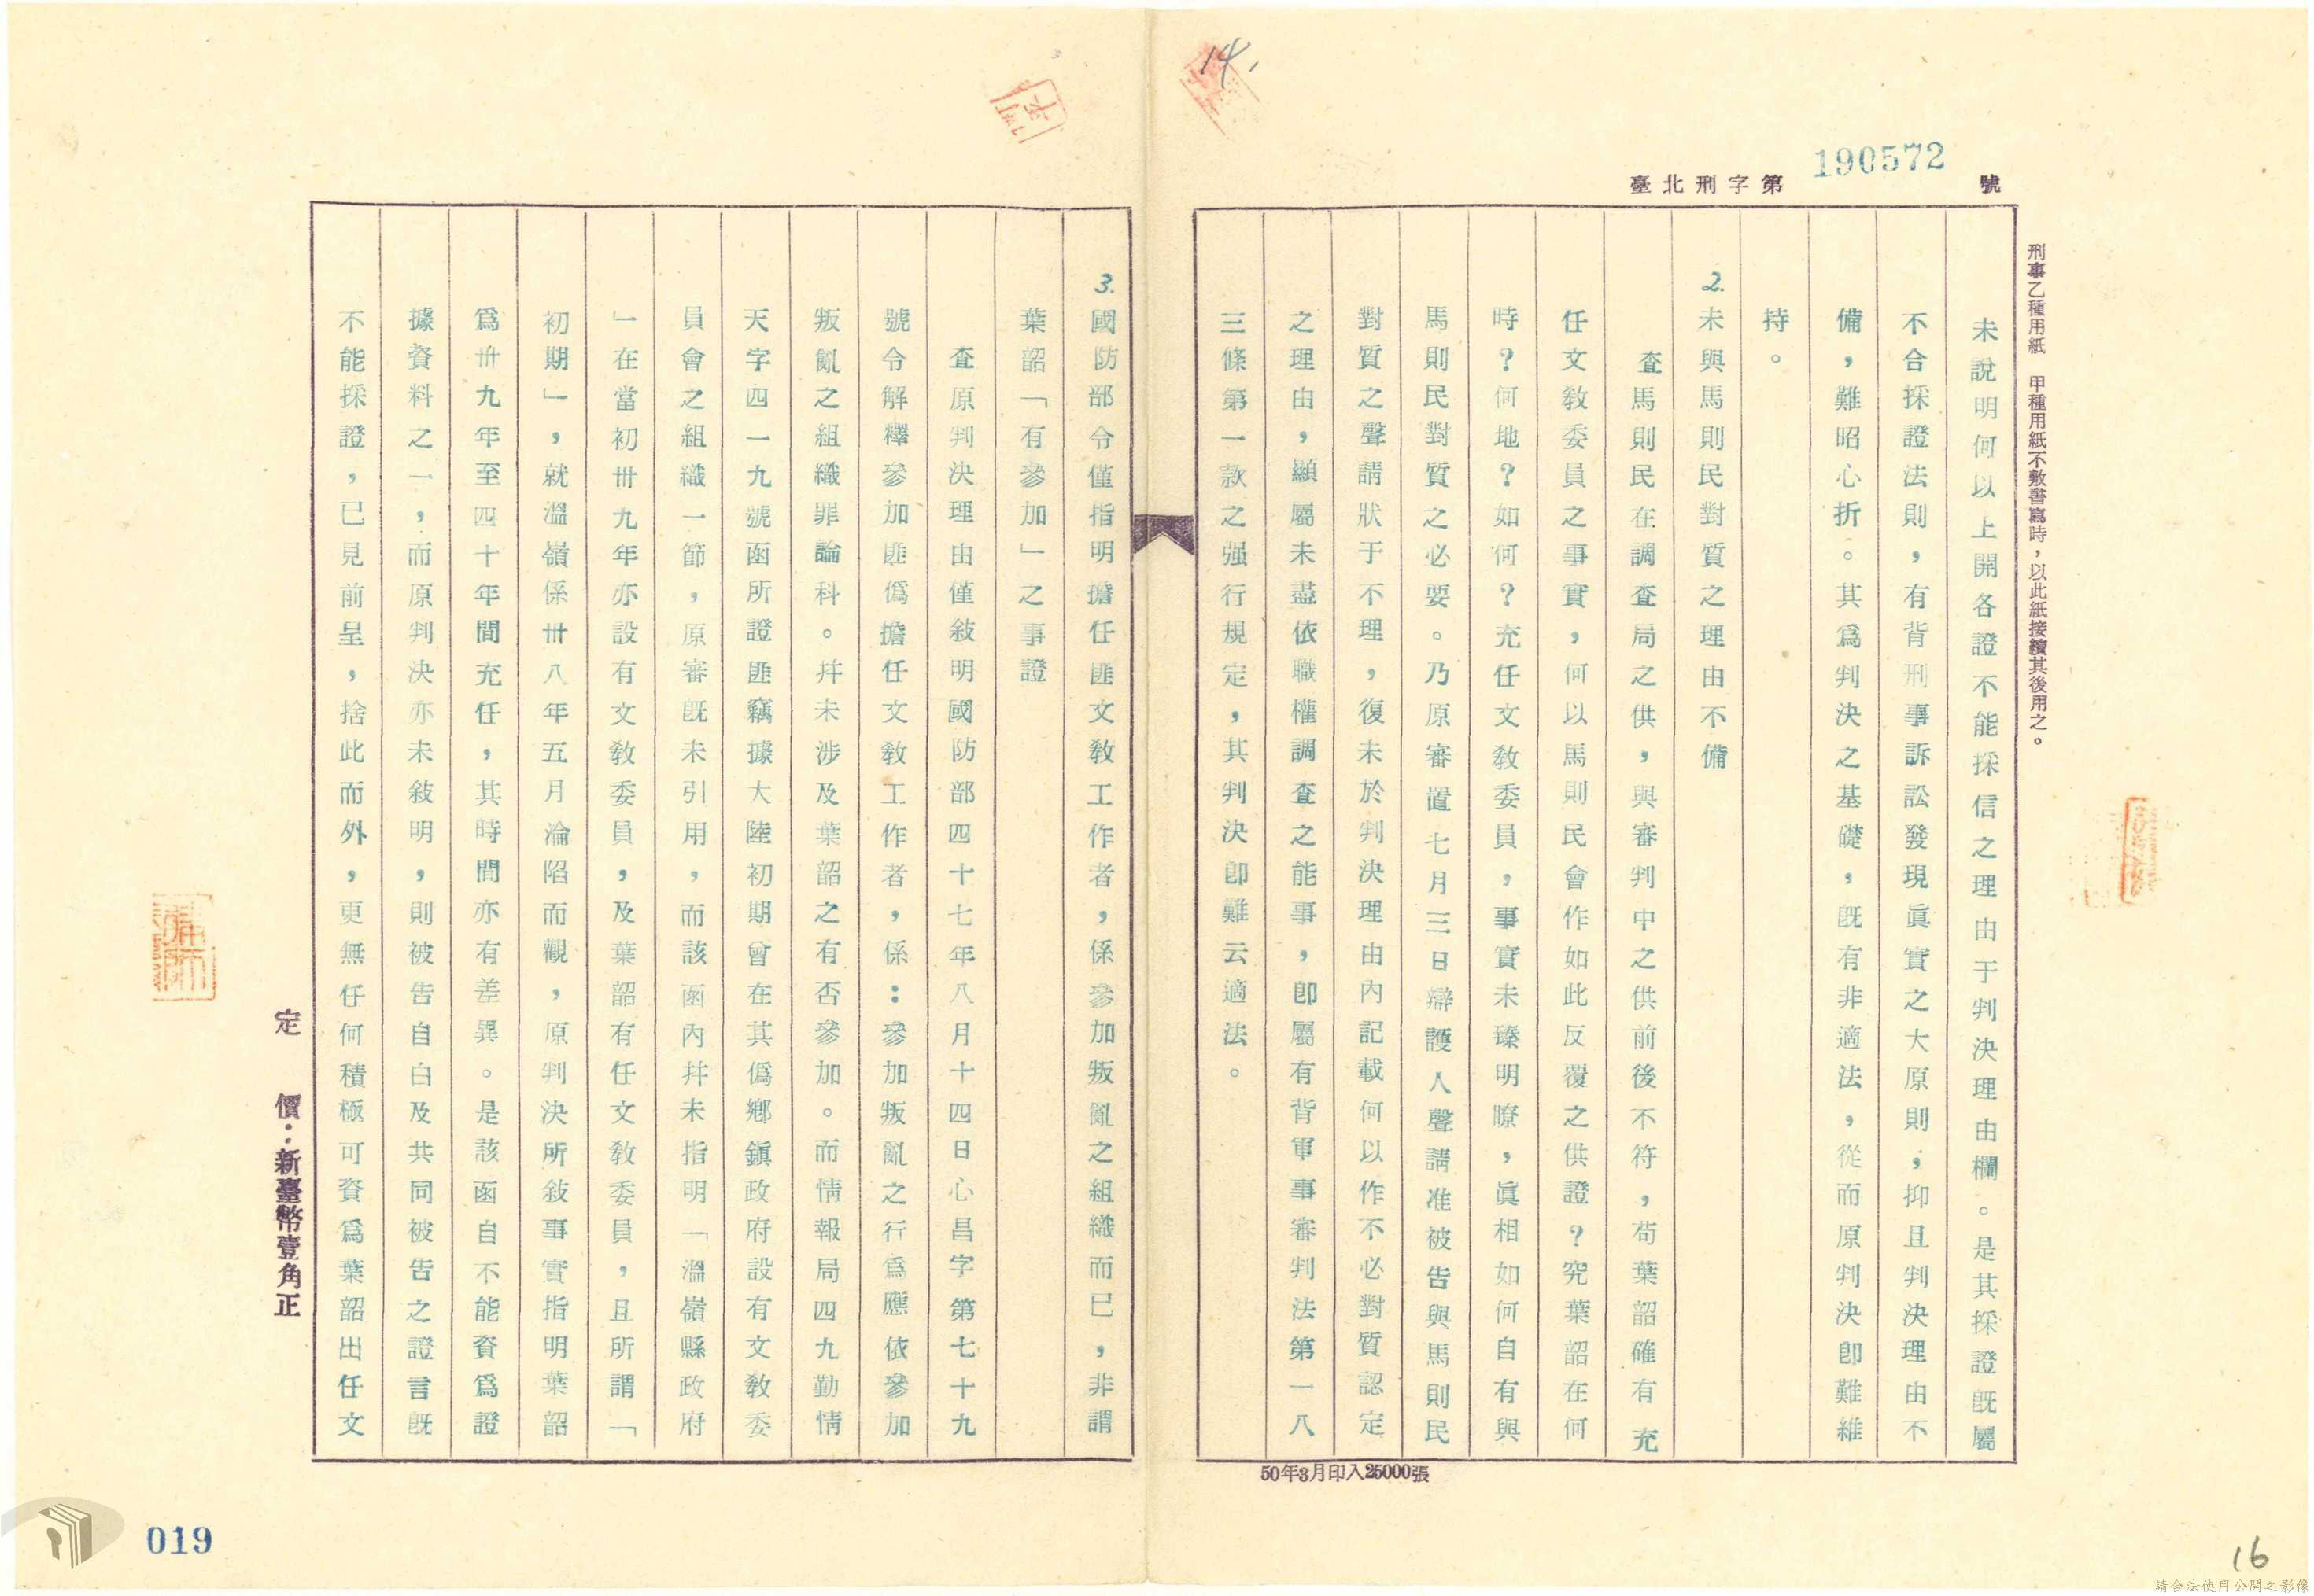 14.
臺北刑字第 190572 號
刑事乙種用紙　甲種用紙不敷書寫時，以此紙接續其後用之。
未說明何以上開各證不能採信之理由于判決理由欄。是其採證旣屬
不合採證法則，有背刑事訴訟發現眞實之大原則；抑且判決理由不
備，難昭心折。其爲判決之基礎，旣有非適法，從而原判決卽難維
持。
2.未與馬則民對質之理由不備
查馬則民在調查局之供，與審判中之供前後不符，苟葉韶確有充
任文教委員之事實，何以馬則民會作如此反覆之供證？究葉韶在何
時？何地？如何？充任文教委員，事實未臻明瞭，眞相如何自有與
馬則民對質之必要。乃原審置七月三日辯護人聲請准被告與馬則民
對質之聲請狀于不理，復未於判決理由內記載何以作不必對質認定
之理由，顯屬未盡依職權調查之能事，卽屬有背軍事審判法第一八
三條第一款之强行規定，其判決卽難云適法。
50年3月印入25000張
3.國防部令僅指明擔任匪文教工作者，係參加叛亂之組織而已，非謂
葉韶「有參加」之事證
查原判決理由僅敍明國防部四十七年八月十四日心昌字第七十九
號令解釋參加匪僞擔任文教工作者，係：參加叛亂之行爲應依參加
叛亂之組織罪論科。幷未涉及葉韶之有否參加。而情報局四九勤情
天字四一九號函所證匪竊據大陸初期曾在其僞鄉鎭政府設有文教委
員會之組織一節，原審旣未引用，而該函內幷未指明「溫嶺縣政府
」在當初卅九年亦設有文教委員，及葉韶有任文教委員，且所謂「
初期」，就溫嶺係卅八年五月淪陷而觀，原判決所敍事實指明葉韶
爲卅九年至四十年間充任，其時間亦有差異。是該函自不能資爲證
據資料之一，而原判決亦未敍明，則被告自白及共同被告之證言旣
不能採證，已見前呈，捨此而外，更無任何積極可資爲葉韶出任文
定　價：新臺幣壹角正
019
16
請合法使用公開之影像